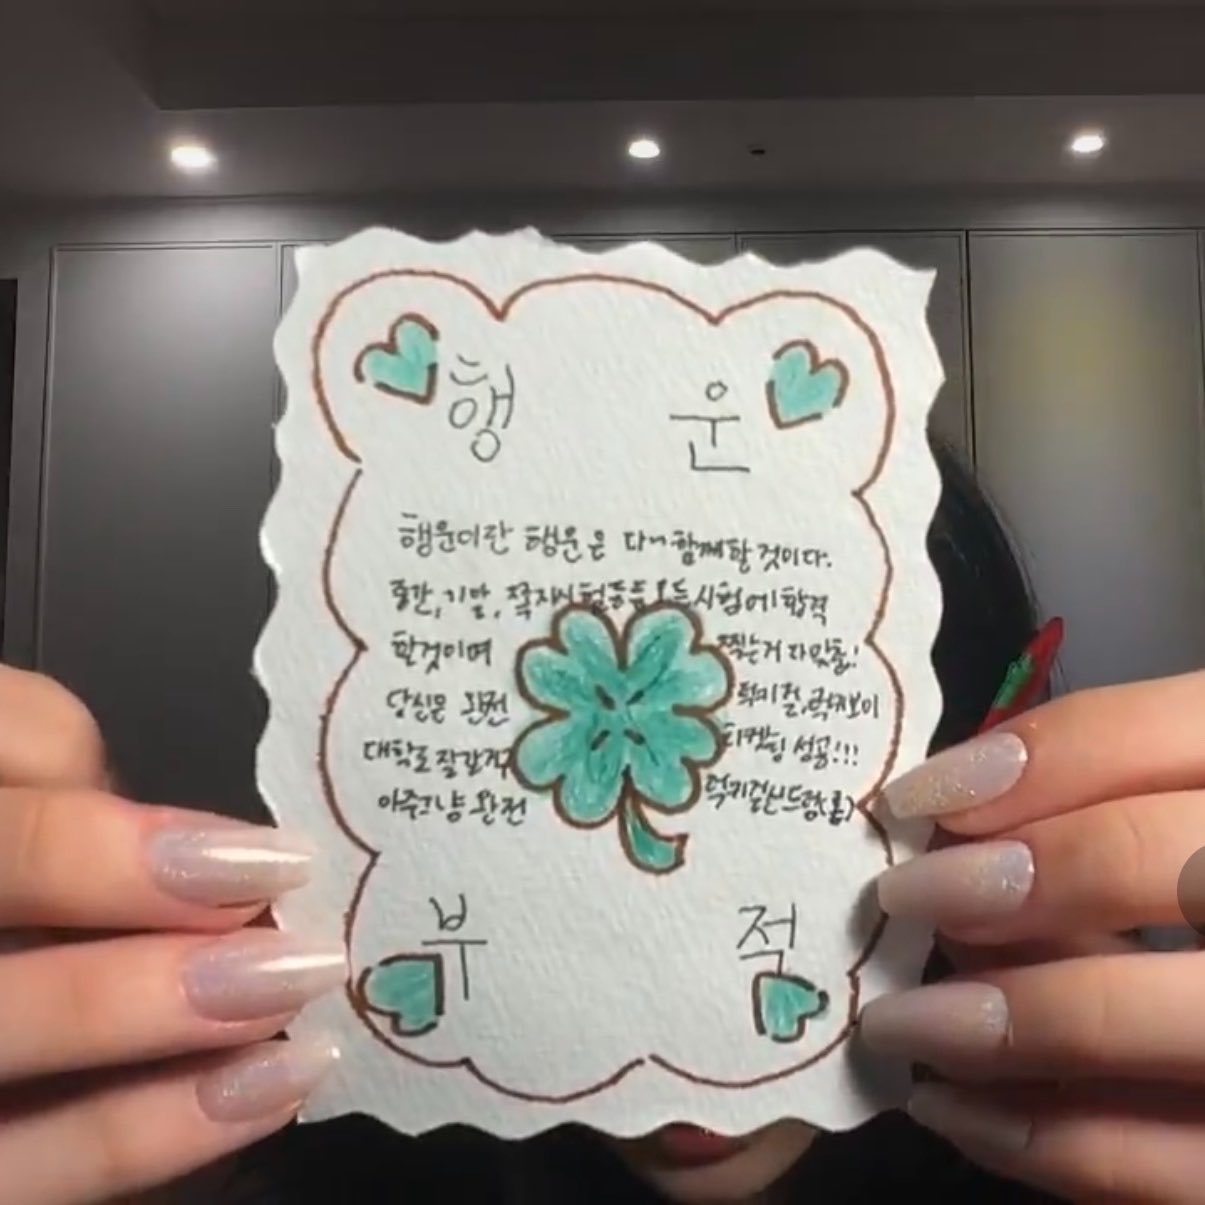 행 운
행운이란 행운은 다~ 함께할 것이다.
중간, 기말, 쪽지시험등등 모든 시험에 합격
할것이며 찍는거 다맞출!
당신은 완전 럭키걸, 럭키보이
대학도 잘갈거구 티켓팅 성공!!!
아주그냥 완전 럭키걸신드롬
부 적